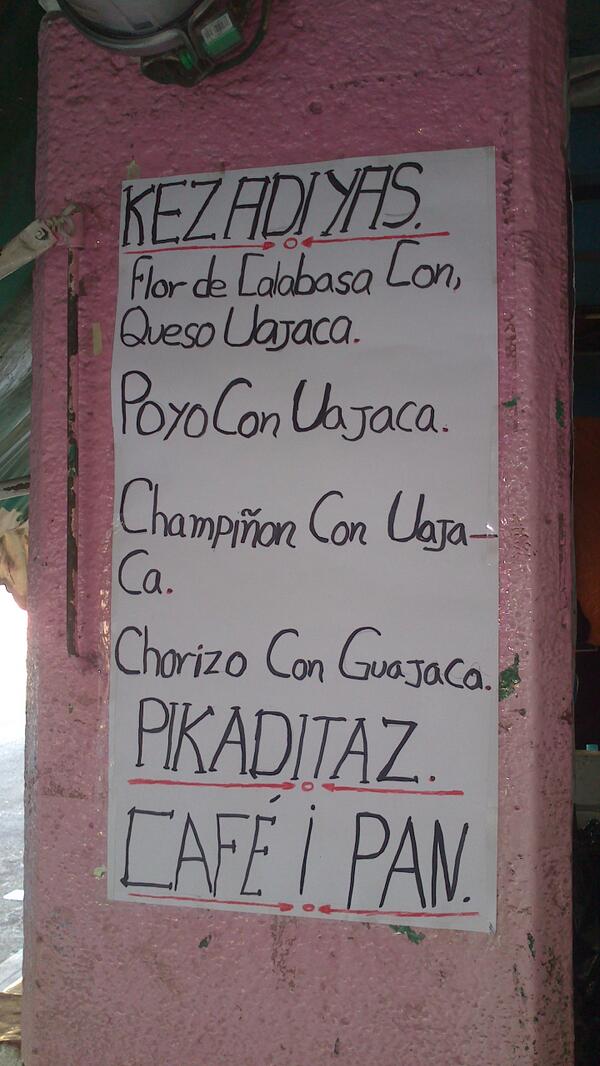 KEZADIYAS.
Flor de Calabasa Con,
Queso Uajaca.
Poyo Con Uajaca.
Champiñon Con Uaja-
Ca.
Chorizo Con Guajaca.
PIKADITAZ.
CAFÉ i PAN.